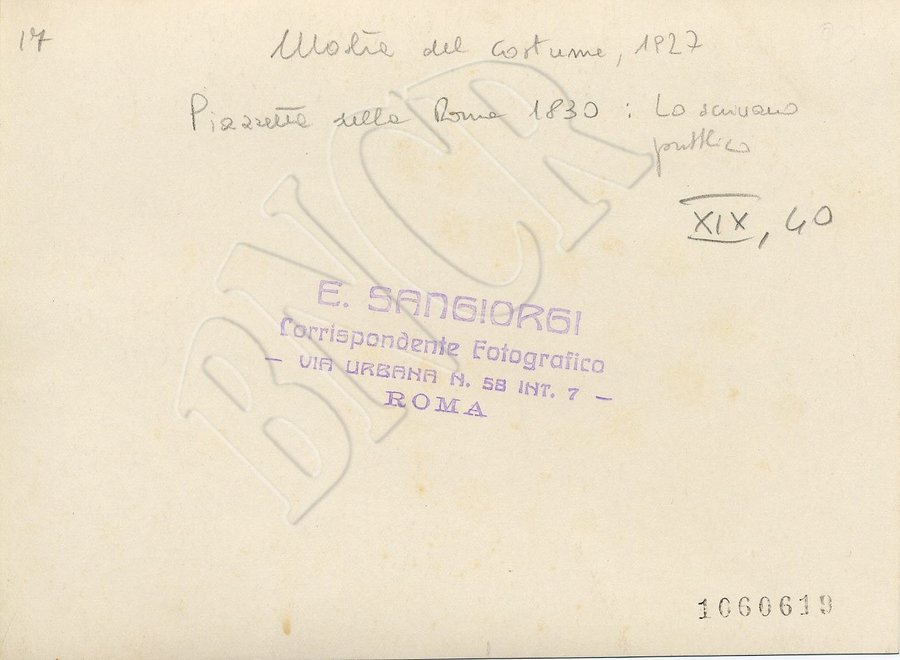 17
Mostra del Costume, 1927
Piazzetta della Roma 1830 : Lo scrivano
pubblico
XIX, 40
BNCR
E. SANGIORGI
Corrispondente Fotografico
— VIA URBANA N. 58 INT. 7 —
ROMA
1060619